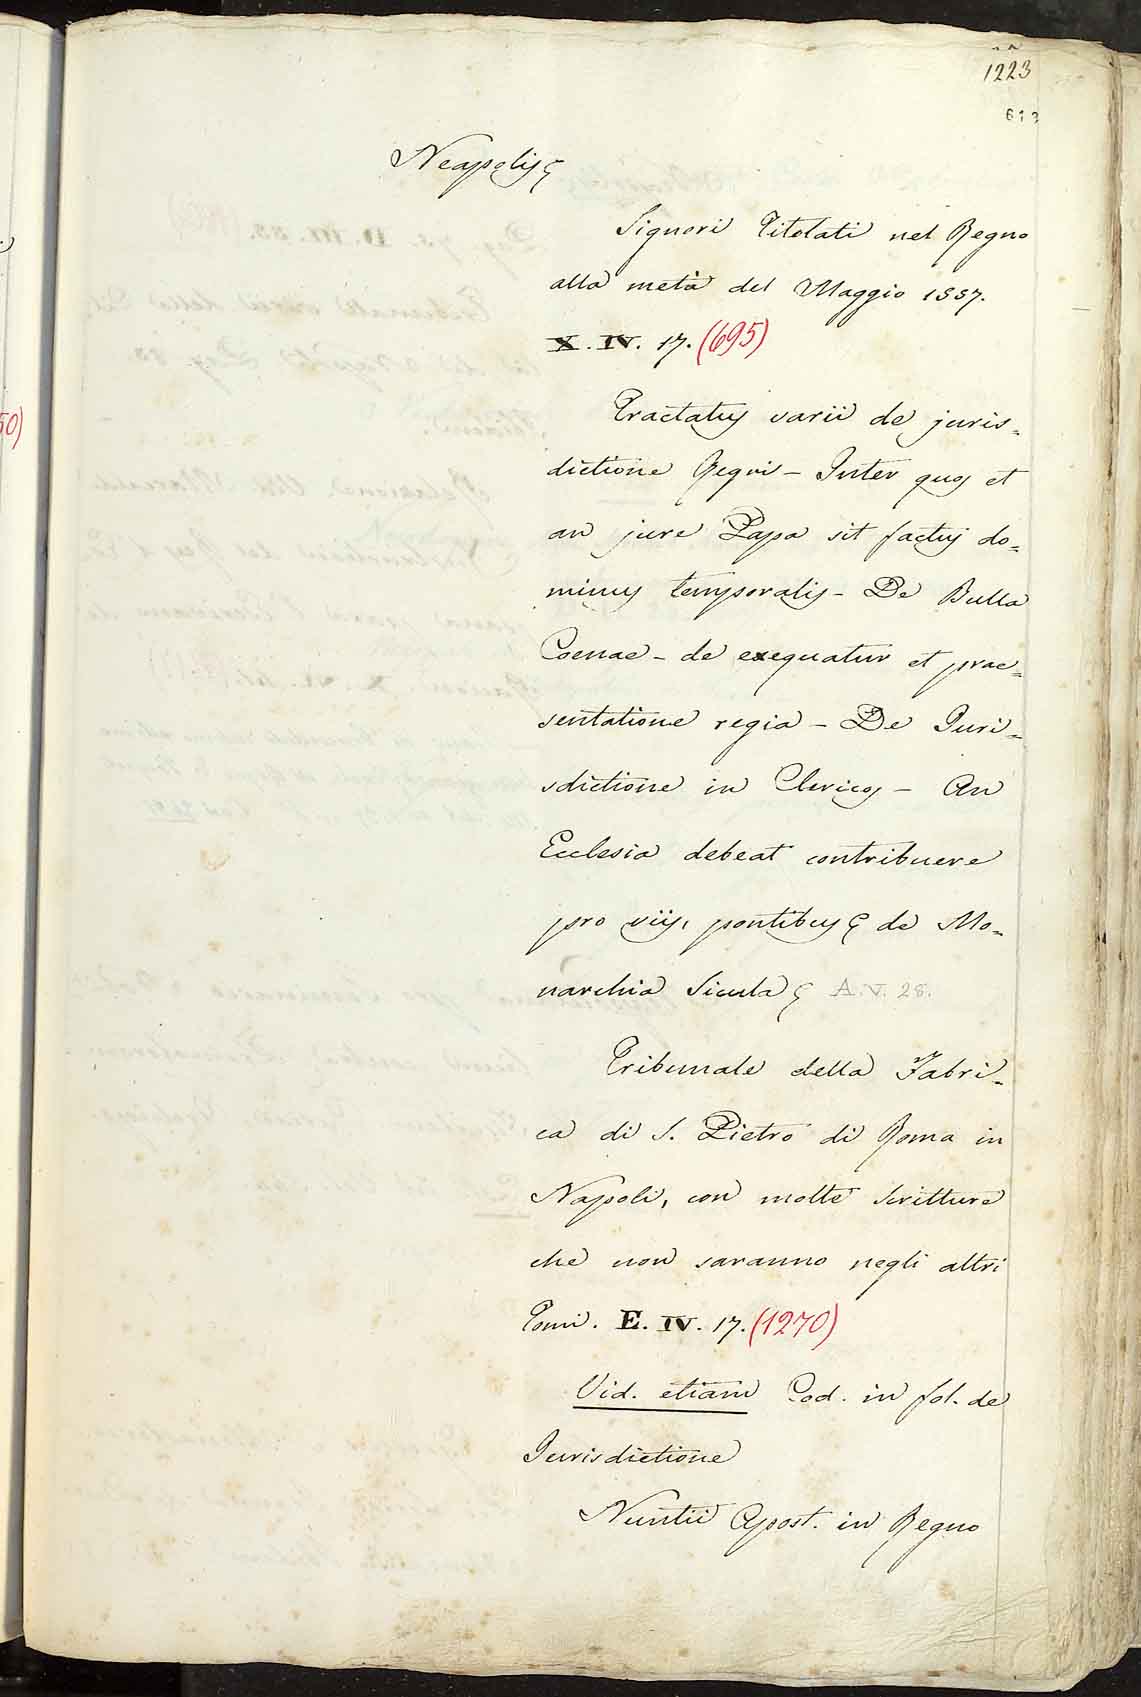 1223
613
Neapolis &
Signori Titolati nel Regno
alla metà del Maggio 1557.
X. IV. 17. (695)
Tractatus varii de juris-
dictione Regni - Inter quos et
an jure Papa sit factus do-
minus temporalis - De Bulla
Coenae - de exequatur et prae-
sentatione regia - De Juri-
sdictione in Clericos - An
Ecclesia debeat contribuere
pro viis, pontibus & de Mo-
narchia Sicula & A. V. 28.
Tribunale della Fabri-
ca di S. Pietro di Roma in
Napoli, con molte scritture
che non saranno negli altri
Tomi. E. IV. 17. (1270)
Vid. etiam Cod. in fol. de
Jurisdictione
Nuntii Apost. in Regno
50)